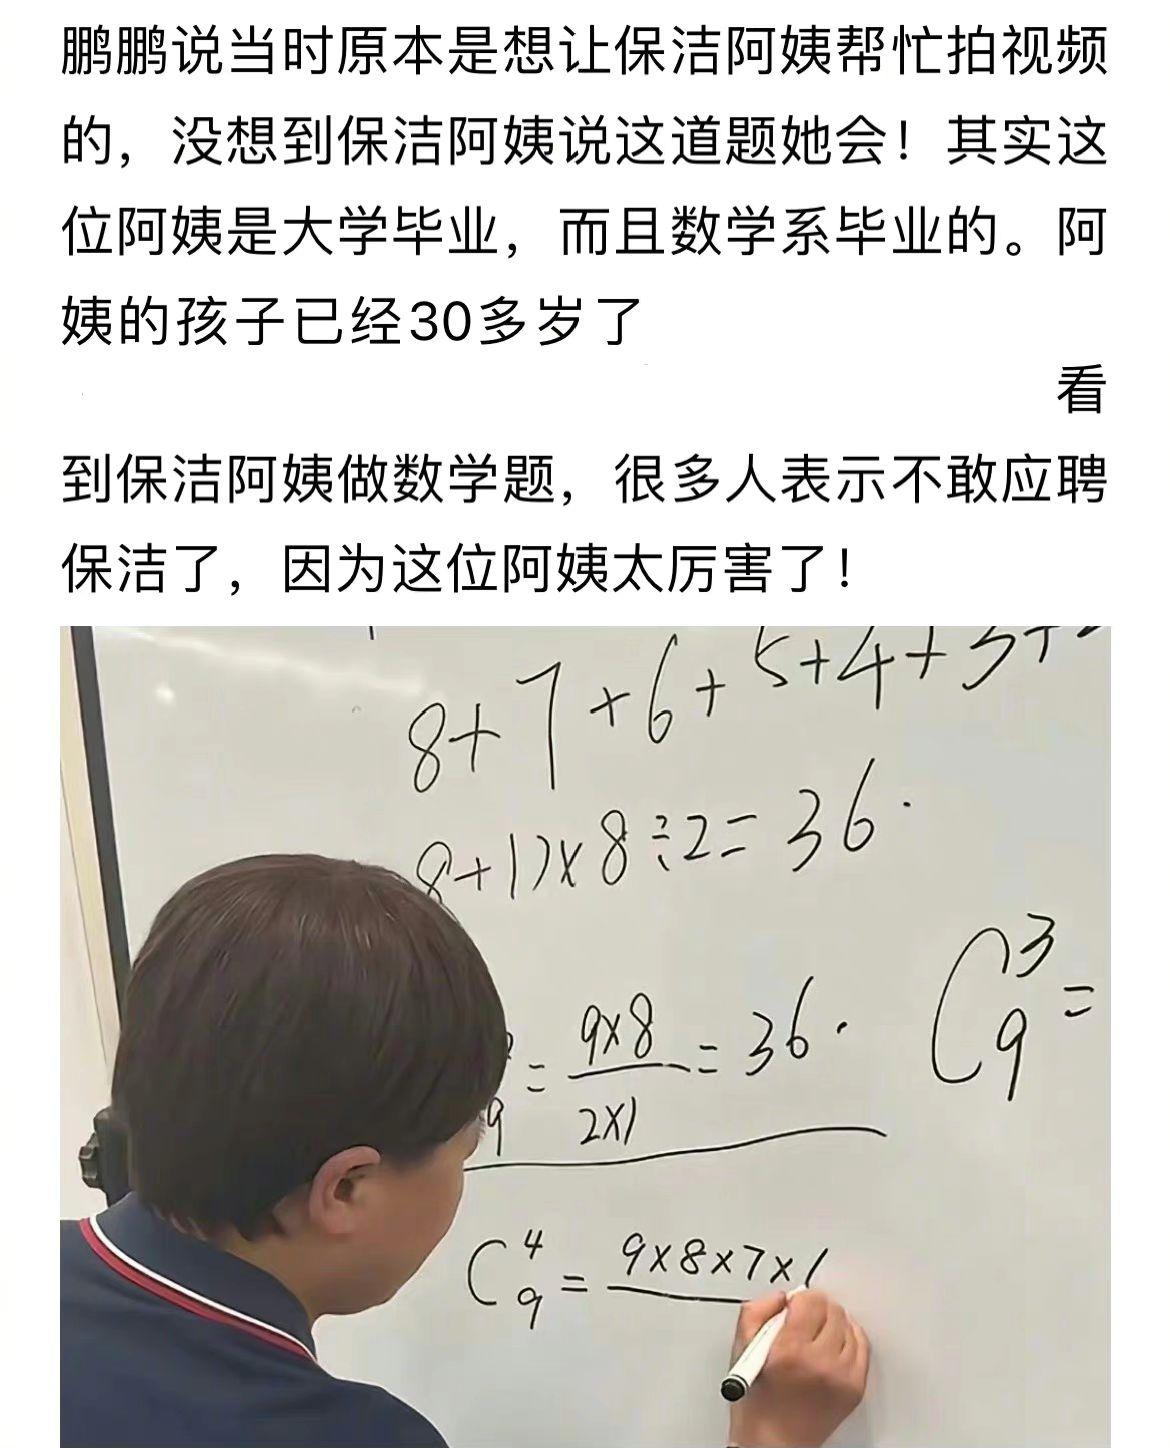 鹏鹏说当时原本是想让保洁阿姨帮忙拍视频
的，没想到保洁阿姨说这道题她会！其实这
位阿姨是大学毕业，而且数学系毕业的。阿
姨的孩子已经30多岁了
看
到保洁阿姨做数学题，很多人表示不敢应聘
保洁了，因为这位阿姨太厉害了！
8+7+6+5+4+3+
8+1)×8÷2=36.
9 = 9×8 / 2×1 = 36.
C₉³ =
C₉⁴ = 9×8×7×